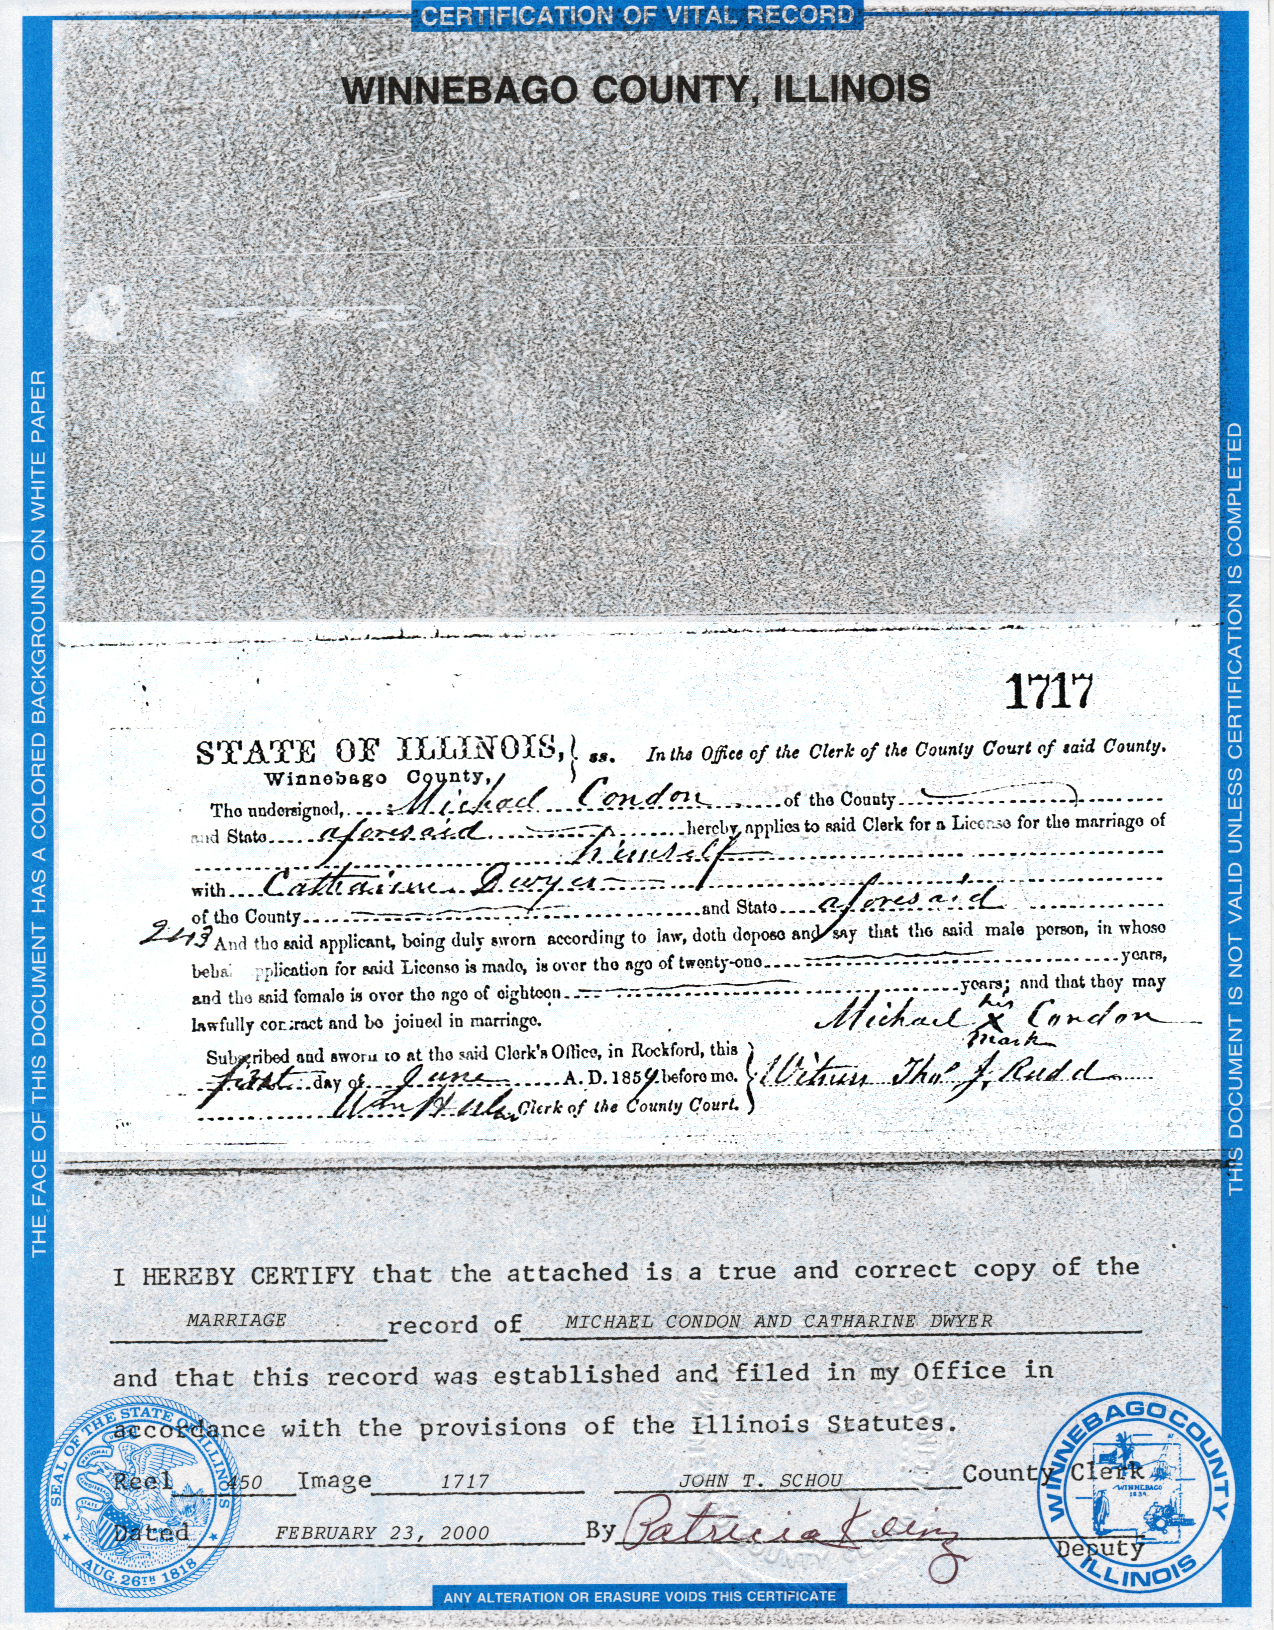 CERTIFICATION OF VITAL RECORD
WINNEBAGO COUNTY, ILLINOIS
THE FACE OF THIS DOCUMENT HAS A COLORED BACKGROUND ON WHITE PAPER
THIS DOCUMENT IS NOT VALID UNLESS CERTIFICATION IS COMPLETED
1717
STATE OF ILLINOIS, } ss. In the Office of the Clerk of the County Court of said County.
Winnebago County,
The undersigned, Michael Condon of the County
and State aforesaid hereby applies to said Clerk for a License for the marriage of
himself
with Catharine Dwyer
of the County and State aforesaid
2413 And the said applicant, being duly sworn according to law, doth depose and say that the said male person, in whose
beha pplication for said License is made, is over the age of twenty-one years,
and the said female is over the age of eighteen years; and that they may
lawfully contract and be joined in marriage.
Michael his X mark Condon
Subscribed and sworn to at the said Clerk's Office, in Rockford, this
first day of June A. D. 1859 before me. Witness Thos J. Rudd
Clerk of the County Court.
I HEREBY CERTIFY that the attached is a true and correct copy of the
MARRIAGE record of MICHAEL CONDON AND CATHARINE DWYER
and that this record was established and filed in my Office in
accordance with the provisions of the Illinois Statutes.
Reel 450 Image 1717 JOHN T. SCHOU County Clerk
Dated FEBRUARY 23, 2000 By Patricia Deputy
SEAL OF THE STATE OF ILLINOIS
AUG. 26TH 1818
WINNEBAGO COUNTY
ILLINOIS
ANY ALTERATION OR ERASURE VOIDS THIS CERTIFICATE